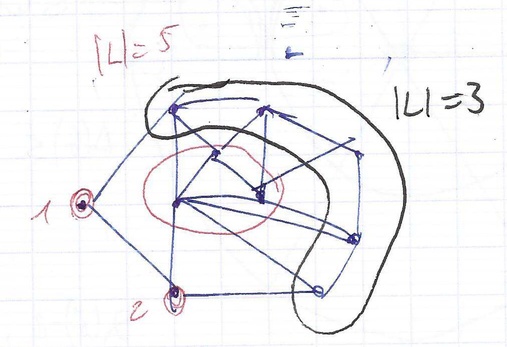 |L|=5
|L|=3
1
2